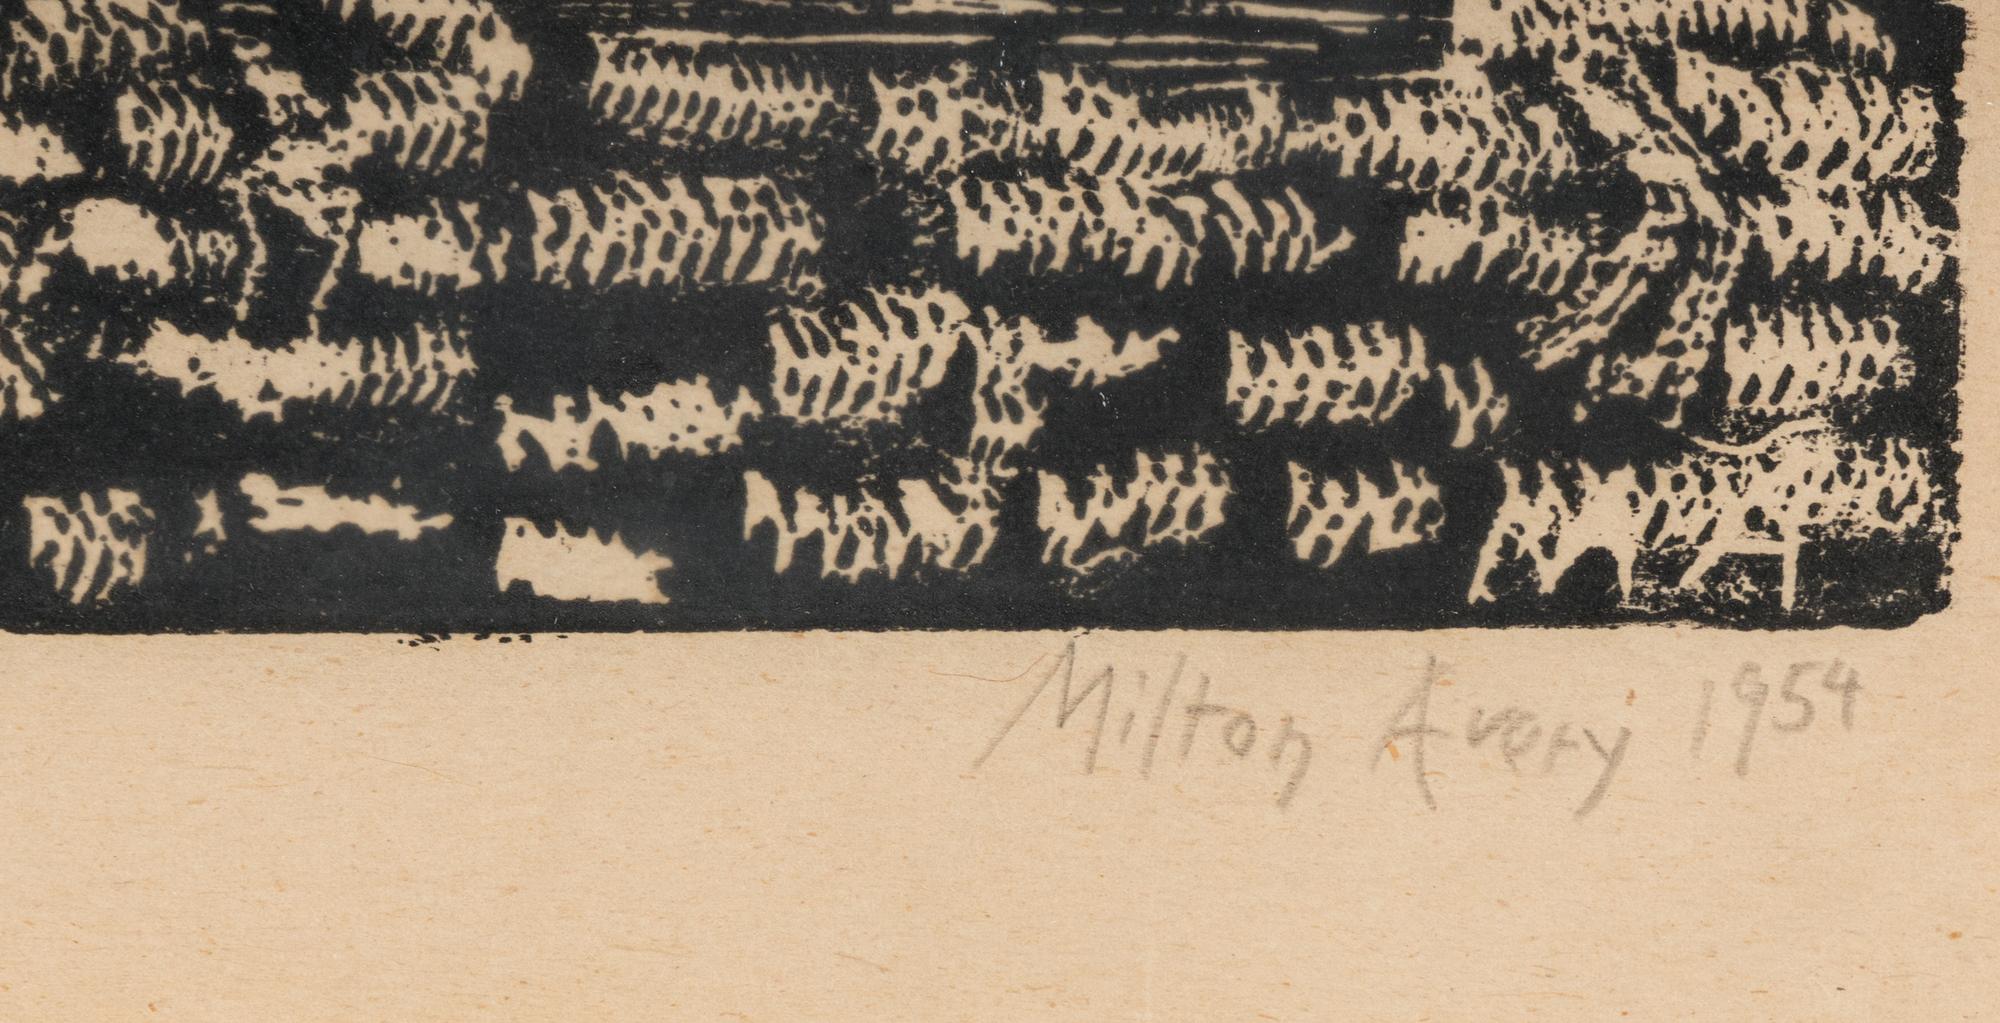 Milton Avery 1954